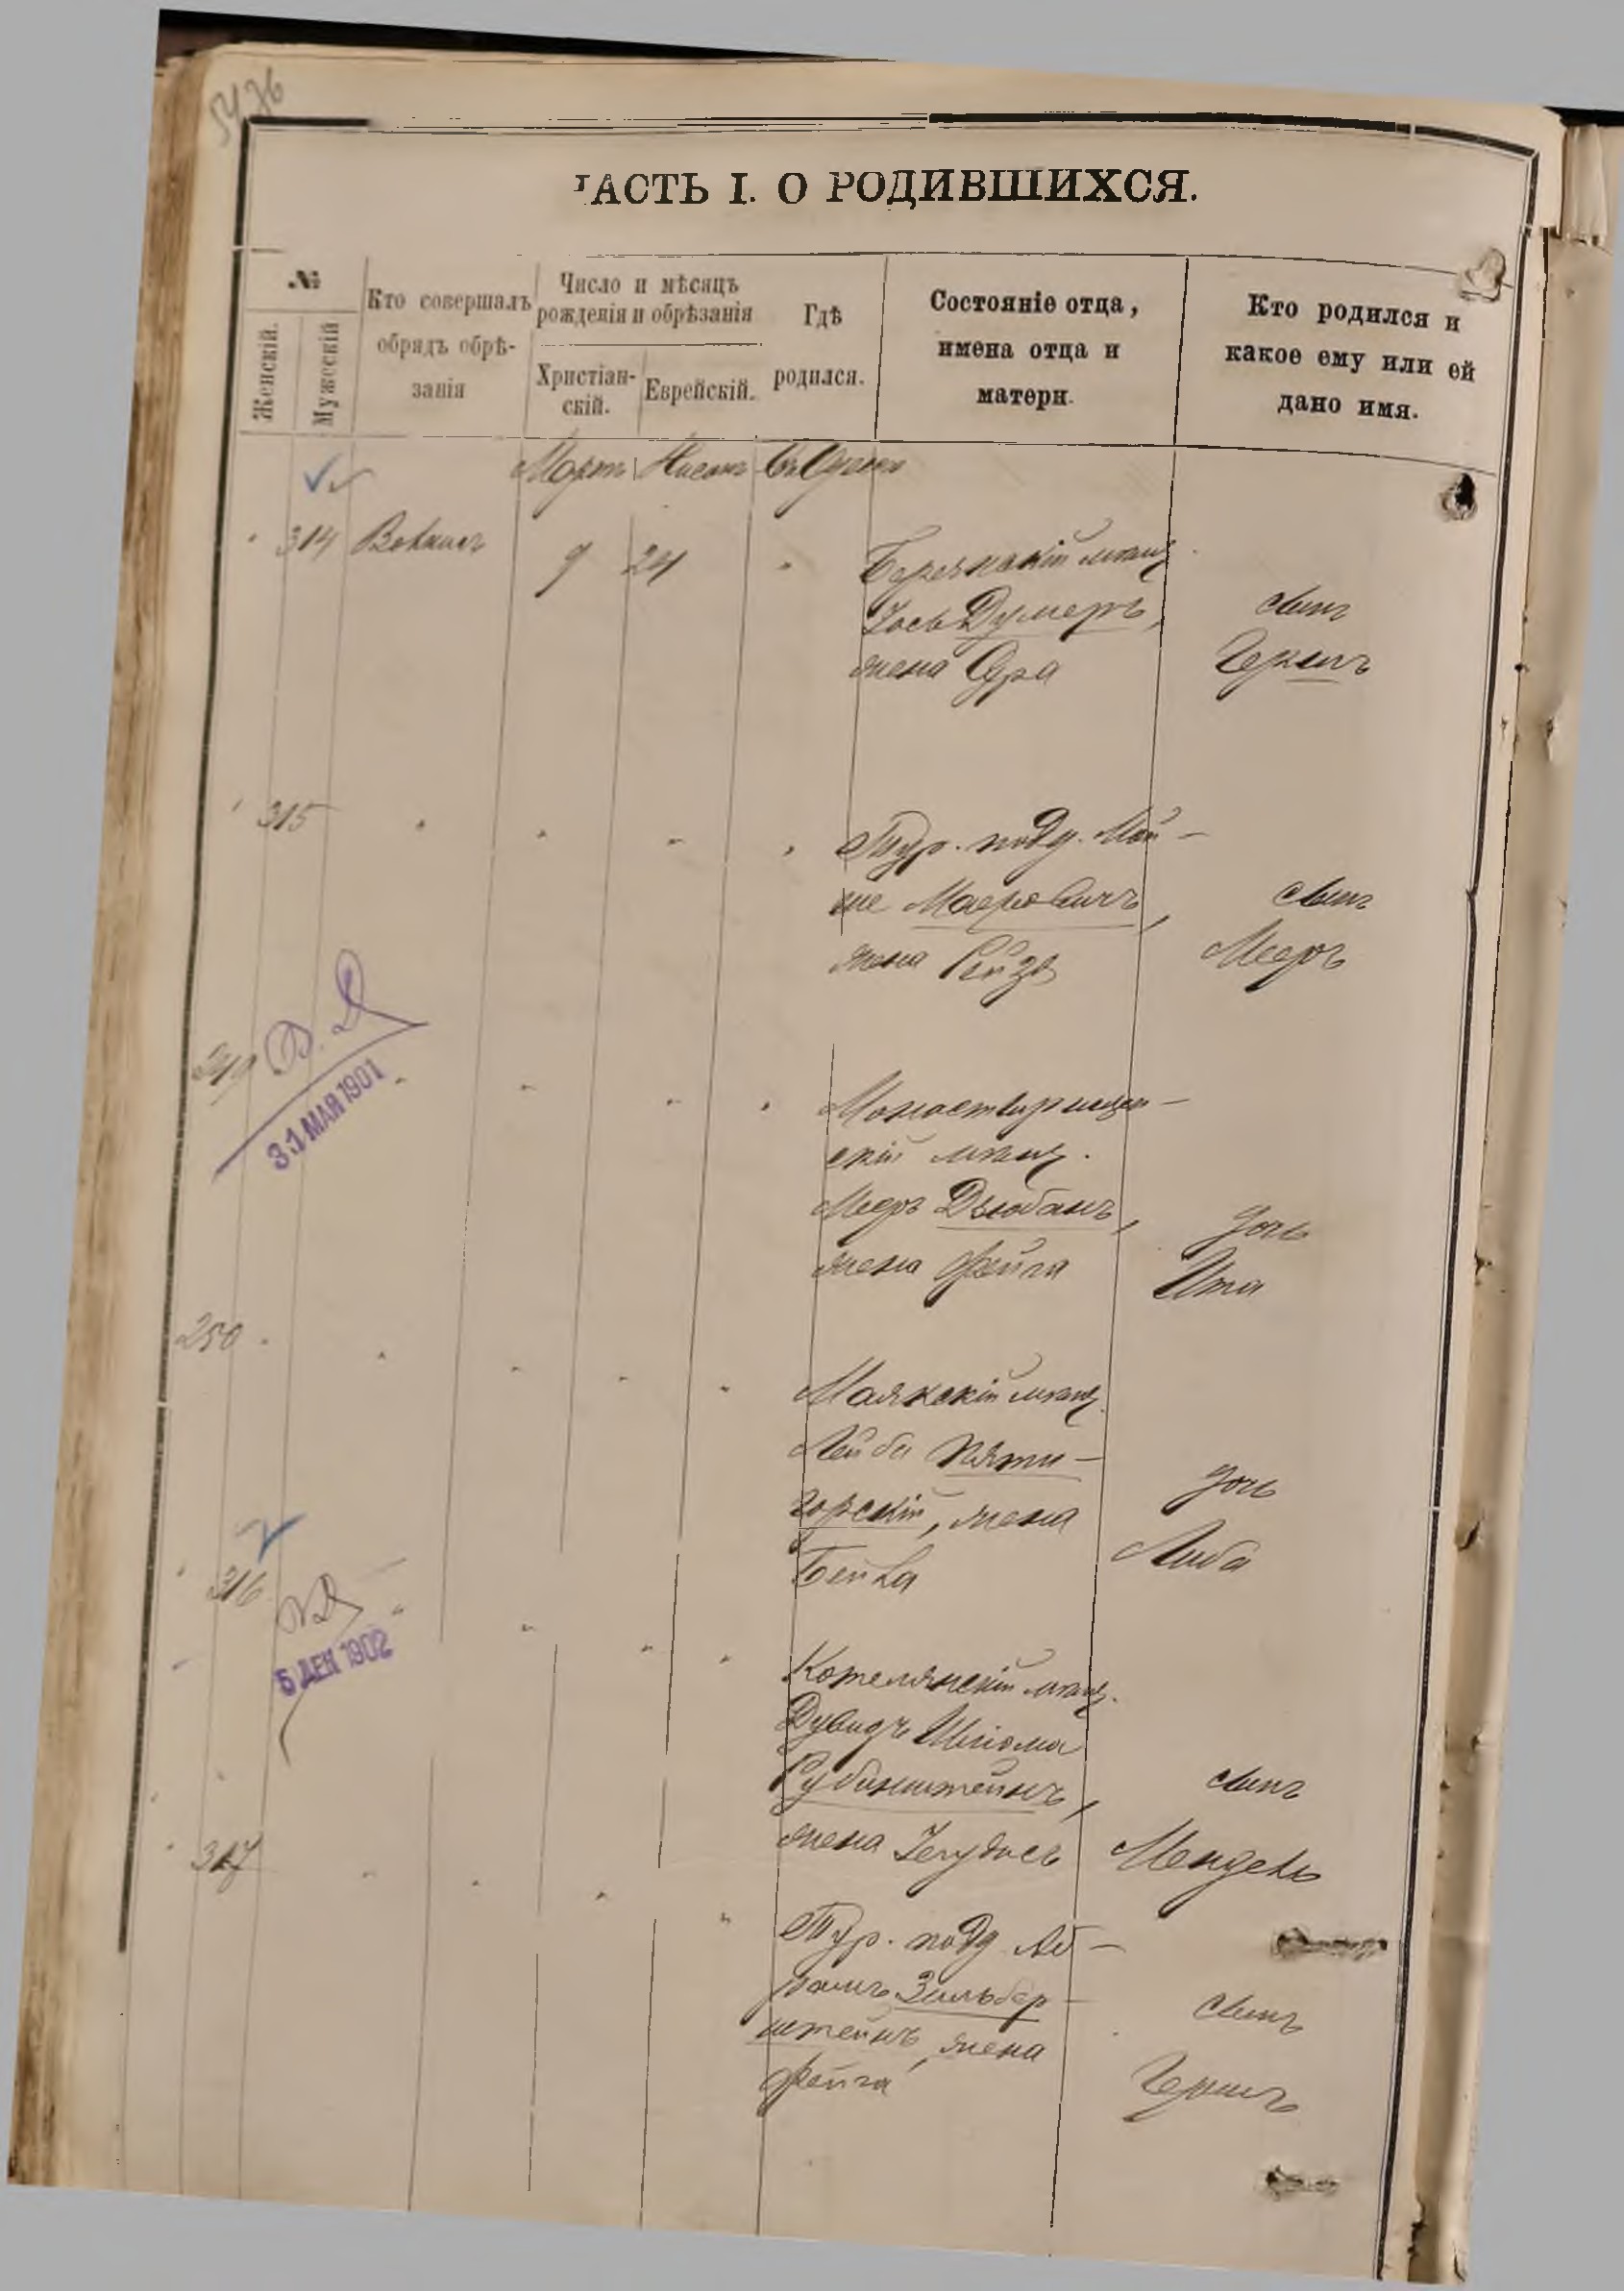 5436
ЧАСТЬ I. О РОДИВШИХСЯ.
№
Женскій.
Мужескій
Кто совершалъ
обрядъ обрѣ-
занія
Число и мѣсяцъ
рожденія и обрѣзанія
Христіан-
скій.
Еврейскій.
Гдѣ
родился.
Состояніе отца,
имена отца и
матери.
Кто родился и
какое ему или ей
дано имя.
Мартъ Нисонъ Въ Одессѣ
314 9 24
мѣщ.
Іось Думеръ,
жена Сура
сынъ
Гершъ
315
Тур. подд. Мой-
ше Маеровичъ,
жена Рейзя
сынъ
Мееръ
249
31 МАЯ 1901
Монастырищен-
скій мѣщ.
Мееръ Дзюбанъ,
жена Фейга
дочь
Ита
250
Маякскій мѣщ.
Лейба Пяти-
горскій, жена
Бейла
дочь
Либа
316
5 ДЕК 1902
Котелянскій мѣщ.
Дувидъ Шлома
Рубинштейнъ,
жена Іегудись
сынъ
Мендель
317
Тур. подд. Аб-
рамъ Зильбер-
штейнъ, жена
Фейга
сынъ
Гершъ